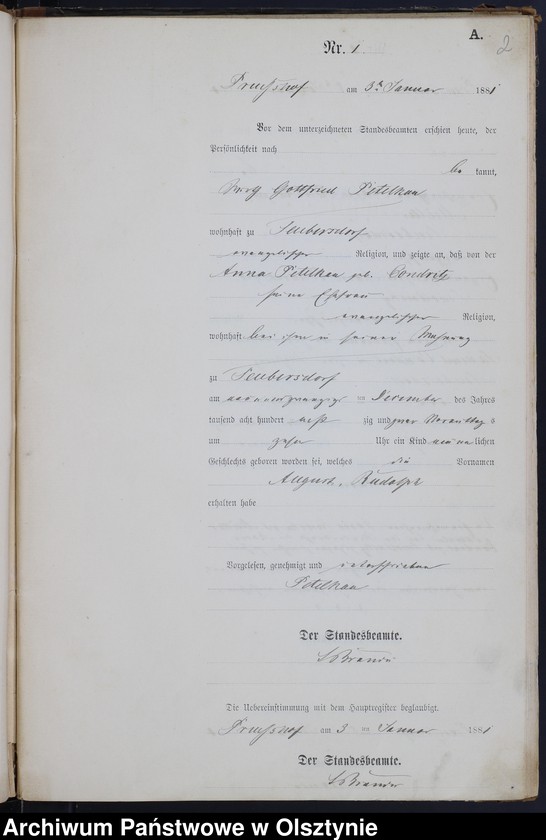 A.
2
Nr. 1
am 3ten Januar 1881
Vor dem unterzeichneten Standesbeamten erschien heute, der
Persönlichkeit nach
be kannt,
Gottfried Petelkau
wohnhaft zu Teubersdorf
evangelischer Religion, und zeigte an, daß von der
Anna Petelkau geb.
seiner Ehefrau
evangelischer Religion,
wohnhaft bei ihm in seiner Wohnung
zu Teubersdorf
am neunundzwanzigsten December des Jahres
tausend acht hundert acht zig und zwar Vormittags
um zehn Uhr ein Kind männ lichen
Geschlechts geboren worden sei, welches die Vornamen
August, Rudolph
erhalten habe
Vorgelesen, genehmigt und unterschrieben
Petelkau
Der Standesbeamte.
Die Uebereinstimmung mit dem Hauptregister beglaubigt.
am 3 ten Januar 1881
Der Standesbeamte.
Archiwum Państwowe w Olsztynie